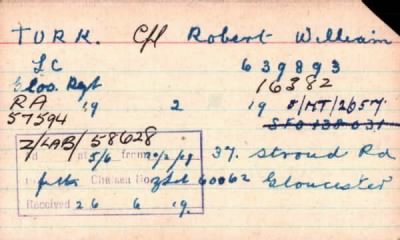 TURK. C/f Robert William
LC 639893
Glos. Regt 16382
RA 19 2 19 8/MT/2657.
57594
Z/LAB/58628
at 5/6 from 20/2/18 37. Stroud Rd
Chelsea 60062 Gloucester
Received 26 6 19.